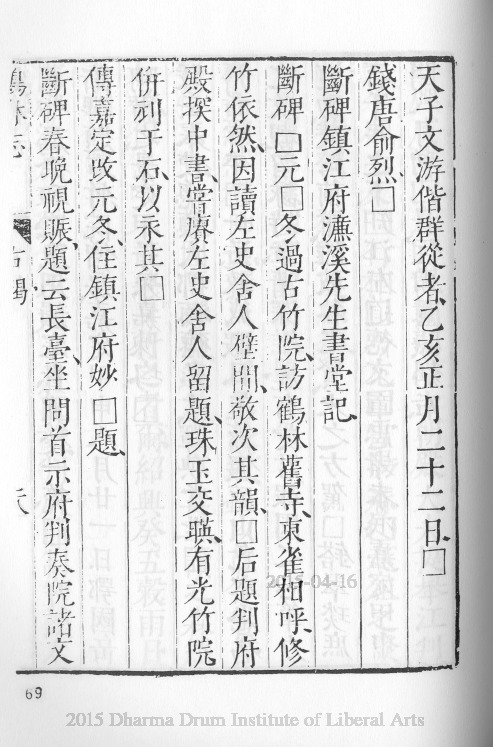 天子文游偕群從者乙亥正月二十二日□
錢唐俞烈□
斷碑鎮江府濂溪先生書堂記
斷碑□元□冬過古竹院訪鶴林舊寺東雀相呼修
竹依然因讀左史舍人壁間敬次其韻□后題判府
殿撰中書嘗賡左史舍人留題珠玉交瑛有光竹院
併刋于石以永其□
傳嘉定改元冬住鎮江府妙□題
斷碑春晚視賑題云長臺坐問首示府判奏院諸文
鶴林志
古蹟
69
2015-04-16
2015 Dharma Drum Institute of Liberal Arts